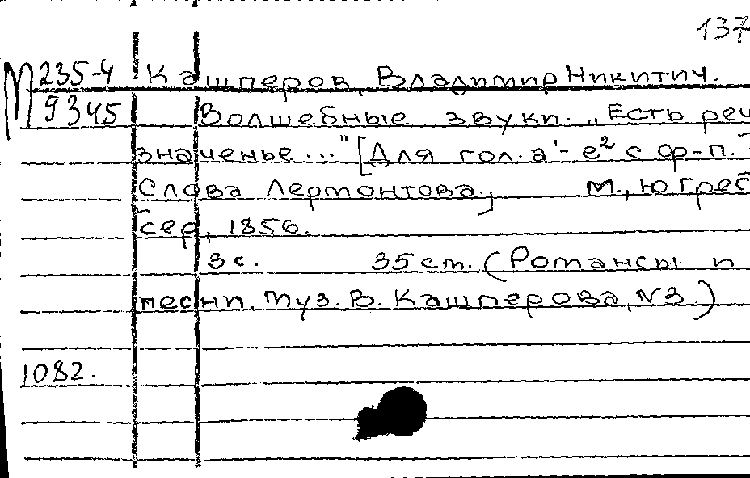 137
М 235-4 Кашперов, Владимир Никитич.
9345 Волшебные звуки. „Есть реч
значенье..." [Для гол. a'-e² с ф-п.
Слова Лермонтова.] М., Ю Грес
сер, 1856.
3 с. 35 см. (Романсы и
песни, муз. В. Кашперова, N3.)
1082.